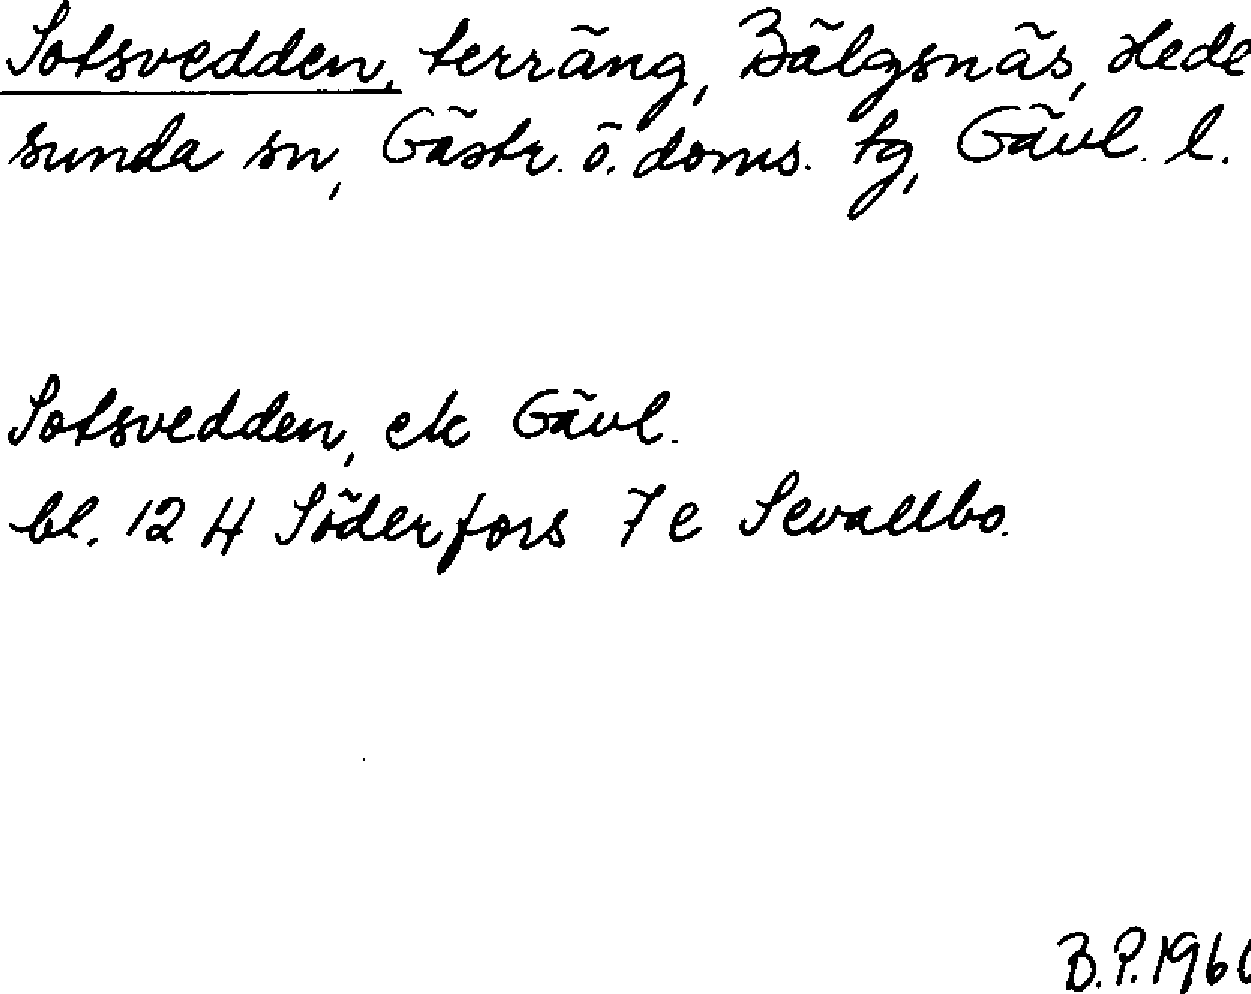 Sotsvedden, terräng, Bälgsnäs, Hede
sunda sn, Gästr. ö. doms. tg, Gävl. l.
Sotsvedden, ek Gävl.
bl. 12 H Söderfors 7 e Sevallbo.
B.P. 196